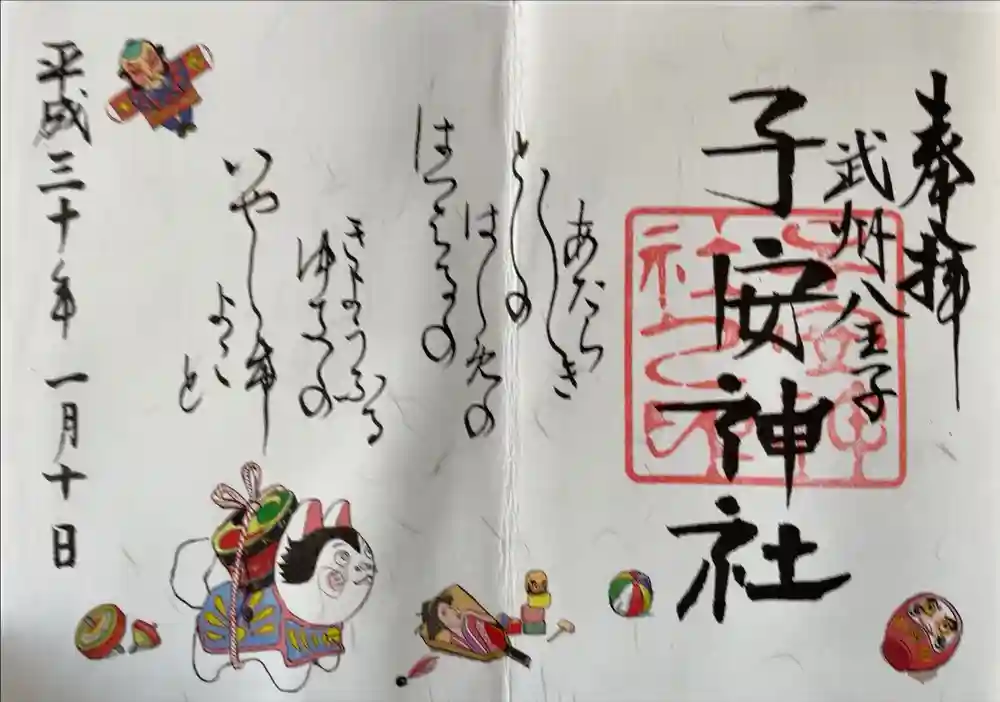 奉拝
武州八王子
子安神社
あたらしき
としの
はしめの
はつはるの
きょうふる
ゆきの
いやしけ
よこと
平成三十年 一月十日